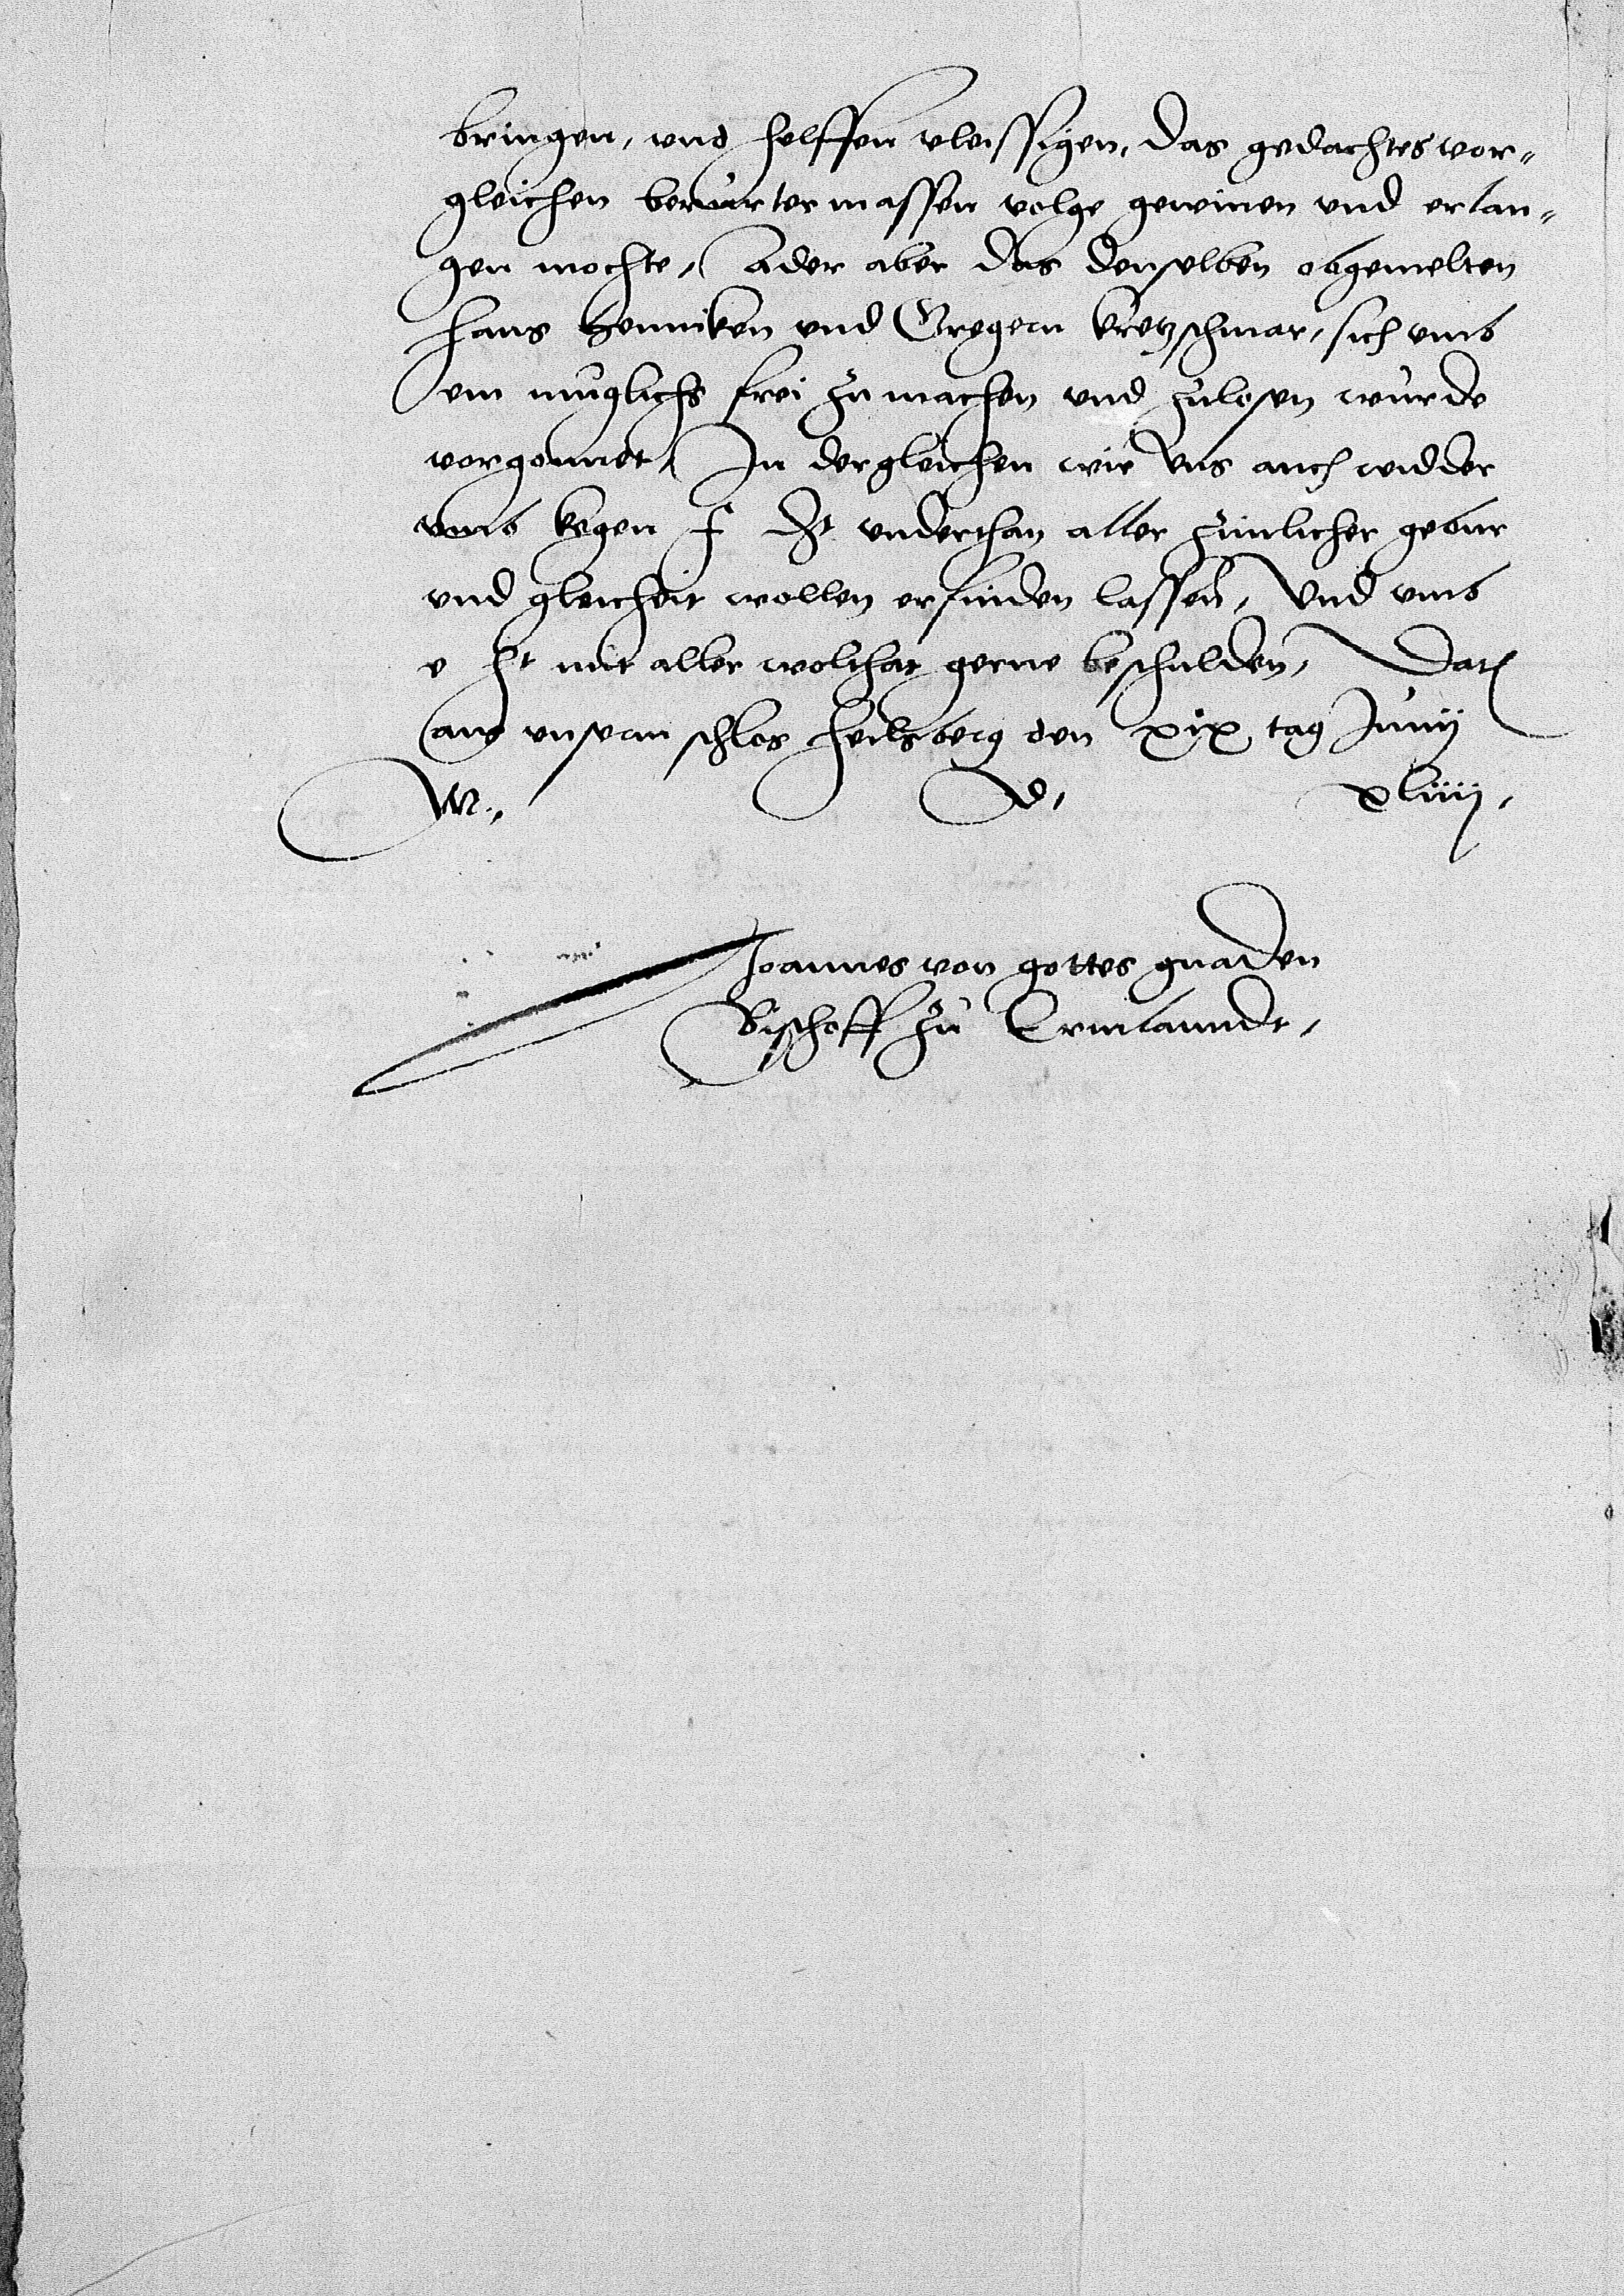 bringen, vnd helffen vleissigen, das gedachtes vor-
gleichen berurter massen volge gewinen vnd erlan-
gen mochte, Ader aber das denselben obgemelten
Hans Henniken vnd Gregern kretzschmar, sich vmb
ein muglichs frei zu machen vnd zulosen wurde
vorgonnet, In dergleichen wir vns auch widder
vmb kegen f d vnderthan aller zimlicher gebur
vnd gleicheit wollen erfinden lassen, Vnd vmb
e ht mit aller wolthat gerne beschulden, Dat
aus vnserm schlos Heilsberg den xix tag Junij
M. D, xliiij,
Joannes von gottes gnaden
Bischoff zu Ermlanndt,